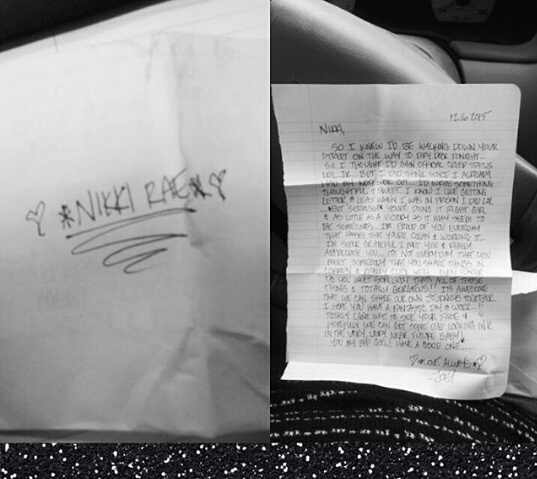 *NIKKI RAE*
12.16.2015
NIKKI,
SO I KNEW I'D BE WALKING DOWN YOUR
STREET ON THE WAY TO DAY TONIGHT...
SO I THOUGHT I'D GAIN OFFICIAL CREEP STATUS
LOL JK... BUT I DID THINK SINCE I ALREADY
HAD MY OUT... I'D WRITE SOMETHING
THOUGHTFUL & SWEET. I KNOW I LIKE GETTING
LETTERS LEAST WHEN I WAS IN PRISON I DID LOL
...BUT YOU'RE DOING IT RIGHT GIRL
& AS LITTLE AS A VICTORY AS IT MAY SEEM TO
BE SOMETIMES... I'M PROUD OF YOU EVERYDAY
THAT PASSES THAT YOU'RE CLEAN & WORKING IT.
I'M SUPER GRATEFUL I MET YOU & REALLY
APPRECIATE YOU... IT'S NOT EVERYDAY THAT YOU
MEET SOMEBODY THAT YOU SHARE THINGS IN
COMMON & REALLY CLICK WITH... EVEN RARER
DO YOU MEET SOMEBODY THAT'S ALL OF THOSE
THINGS & TOTALLY GORGEOUS!! ITS AWESOME
THAT WE CAN SHARE OUR OWN JOURNEYS TOGETHER.
I HOPE YOU HAVE A FANTASTIC DAY @ WORK...!!
TOTALLY CAN'T WAIT TO SEE YOUR &
HOPEFULLY WE CAN GET SOME LOOKING
IN THE VERY, VERY NEAR FUTURE BABY!
YOU MY BFF GIRL! HAVE A GOOD ONE...
*LOVE ALWAYS*
-JOEY